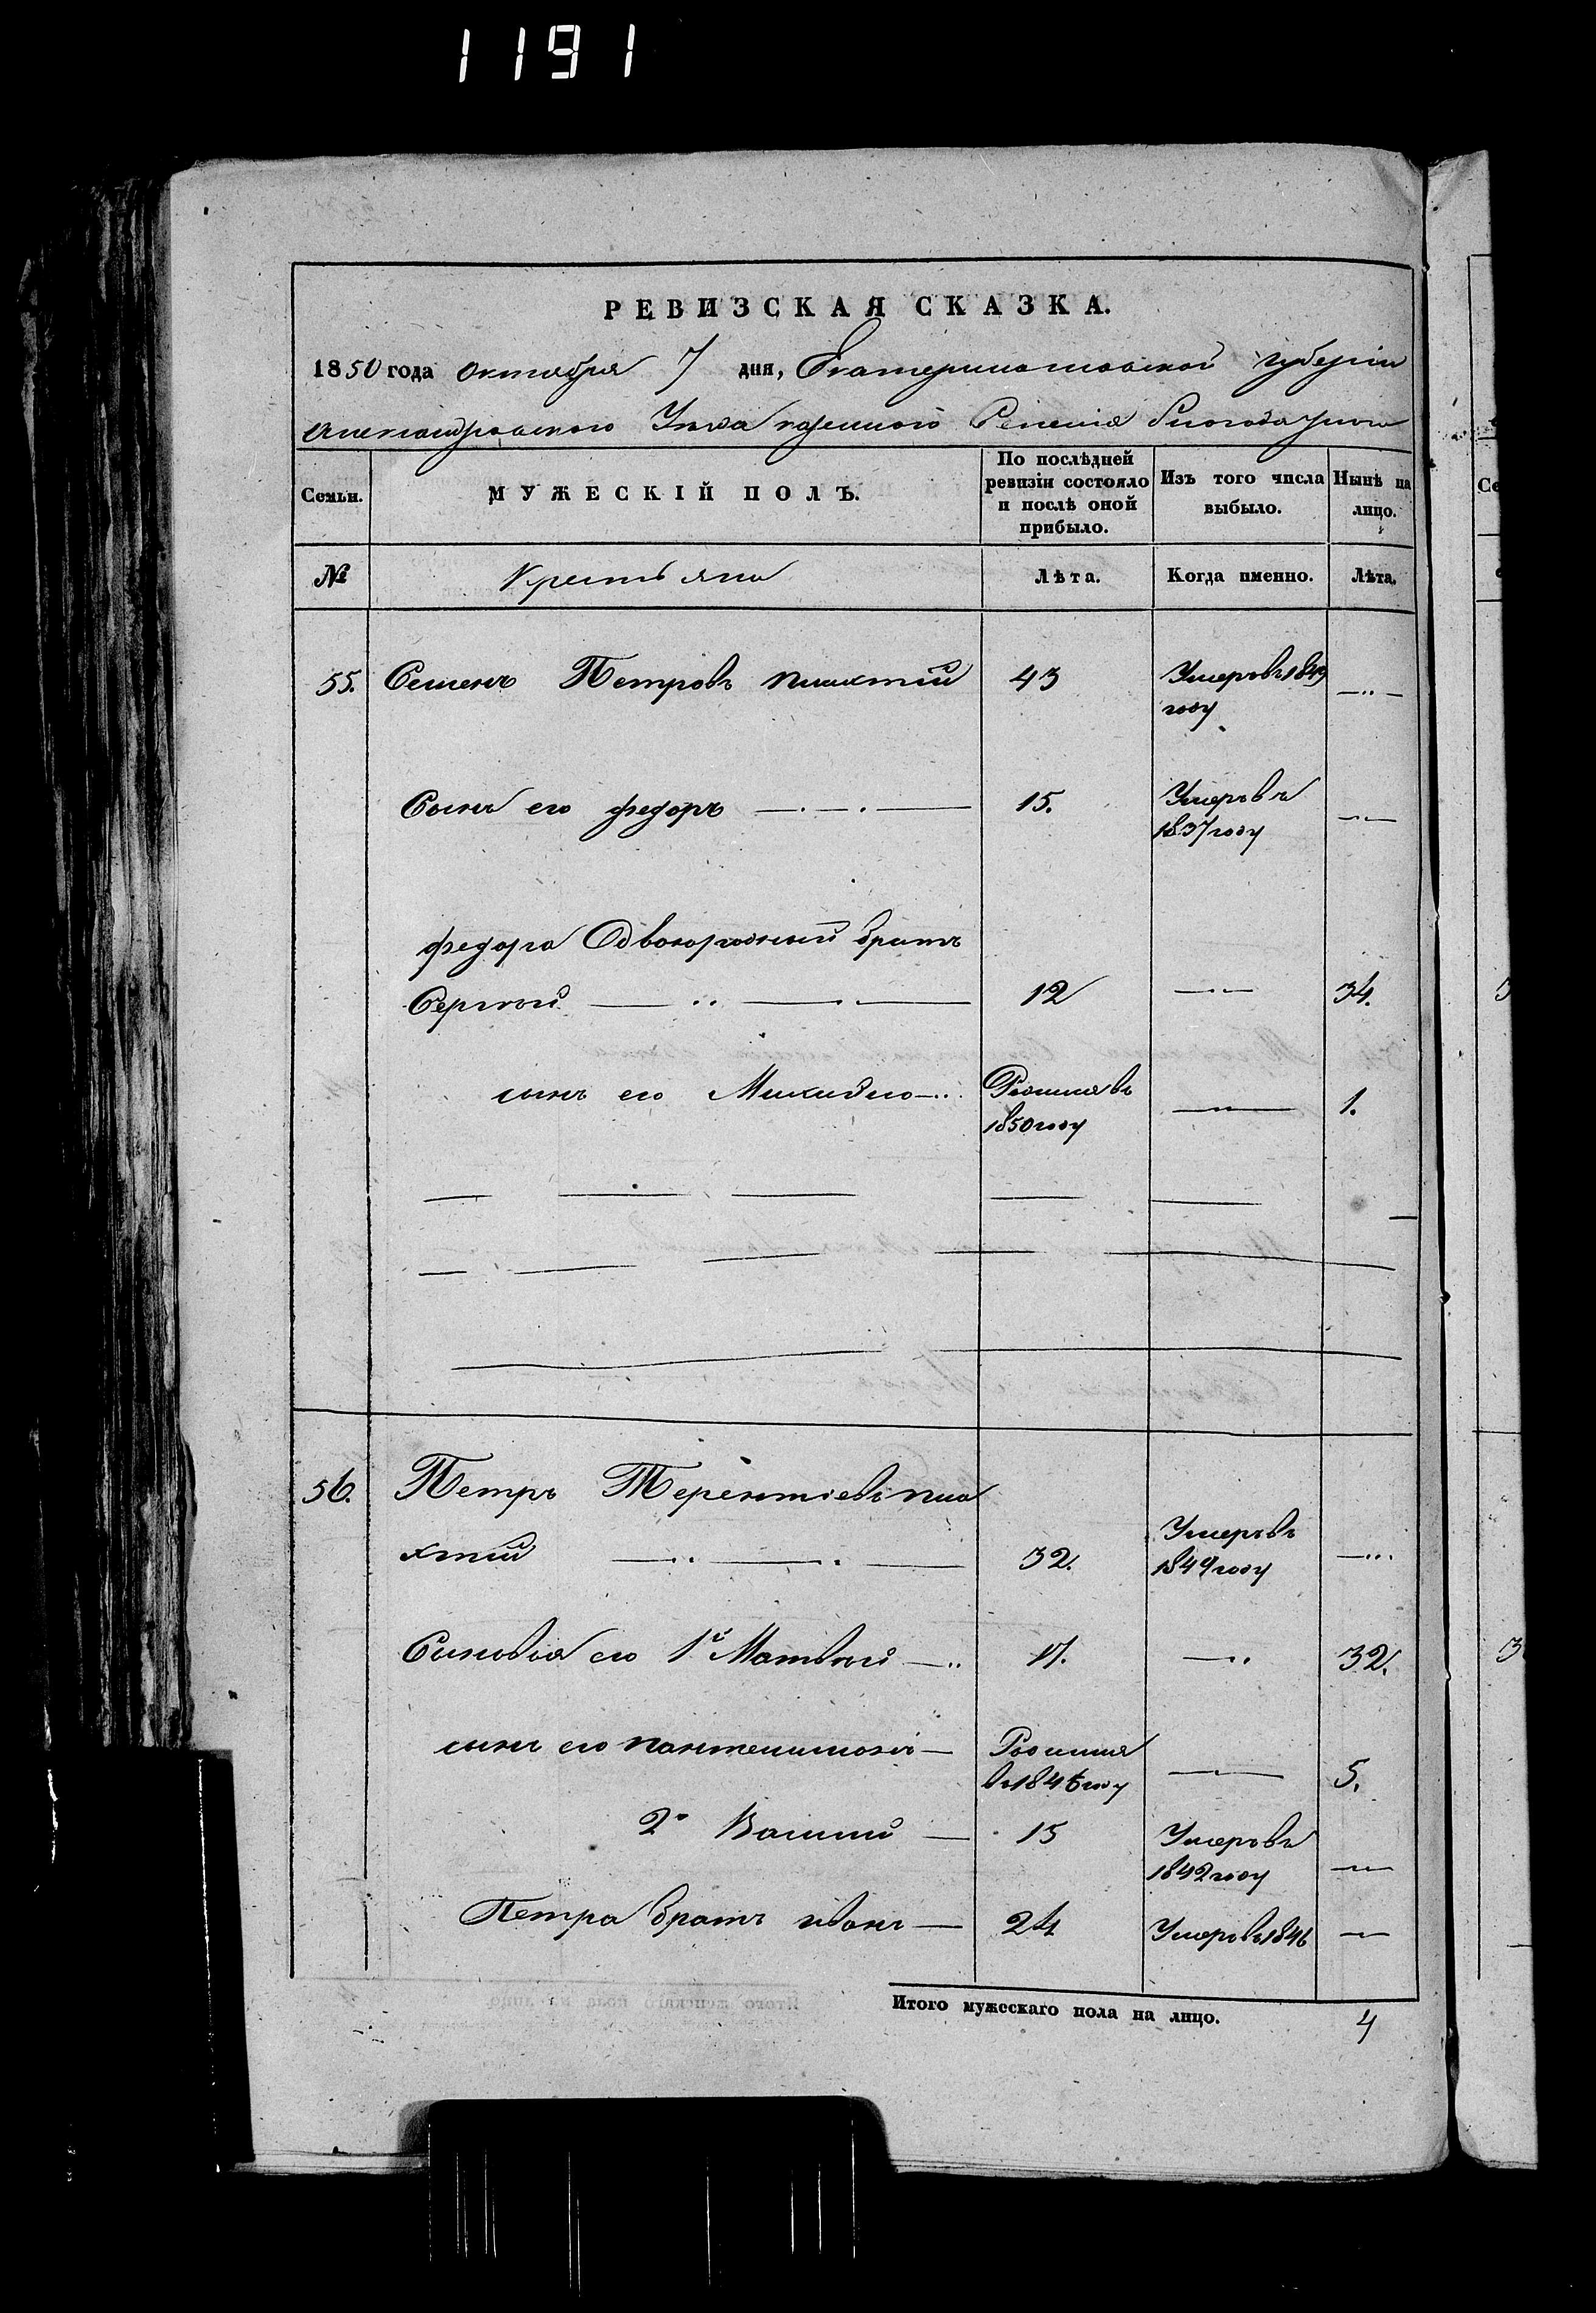 1191
РЕВИЗСКАЯ СКАЗКА.
1850 года октября 7 дня, Екатеринославской губернiи
Александровского Уезда казенного Селенiя Благодатного
Семьи. МУЖЕСКIЙ ПОЛЪ. По послѣдней ревизiи состояло и послѣ оной прибыло. Изъ того числа выбыло. Нынѣ на лицо.
№ Крестьяне Лѣта. Когда именно. Лѣта.
55. Семенъ Петровъ 43 Умеръ въ 1849 году —..—
Сынъ его федоръ —.—.— 15. Умеръ въ 1837 году —..—
федора Двоюродный братъ
Сергѣй — .. — . — 12 —..— 34.
сынъ его Михайло —.. Родился въ 1850 году —..— 1.
56. Петръ Терентiевъ
32. Умеръ въ 1849 году —...
Сыновья его 1й Матвѣй —.. 17. —.. 32.
сынъ его пантелимонъ — Родился въ 1846 году —.— 5.
2й Василий — 15 Умеръ въ 1842 году —..—
Петра братъ иванъ — 24 Умеръ въ 1846 —..—
Итого мужескаго пола на лицо. 4